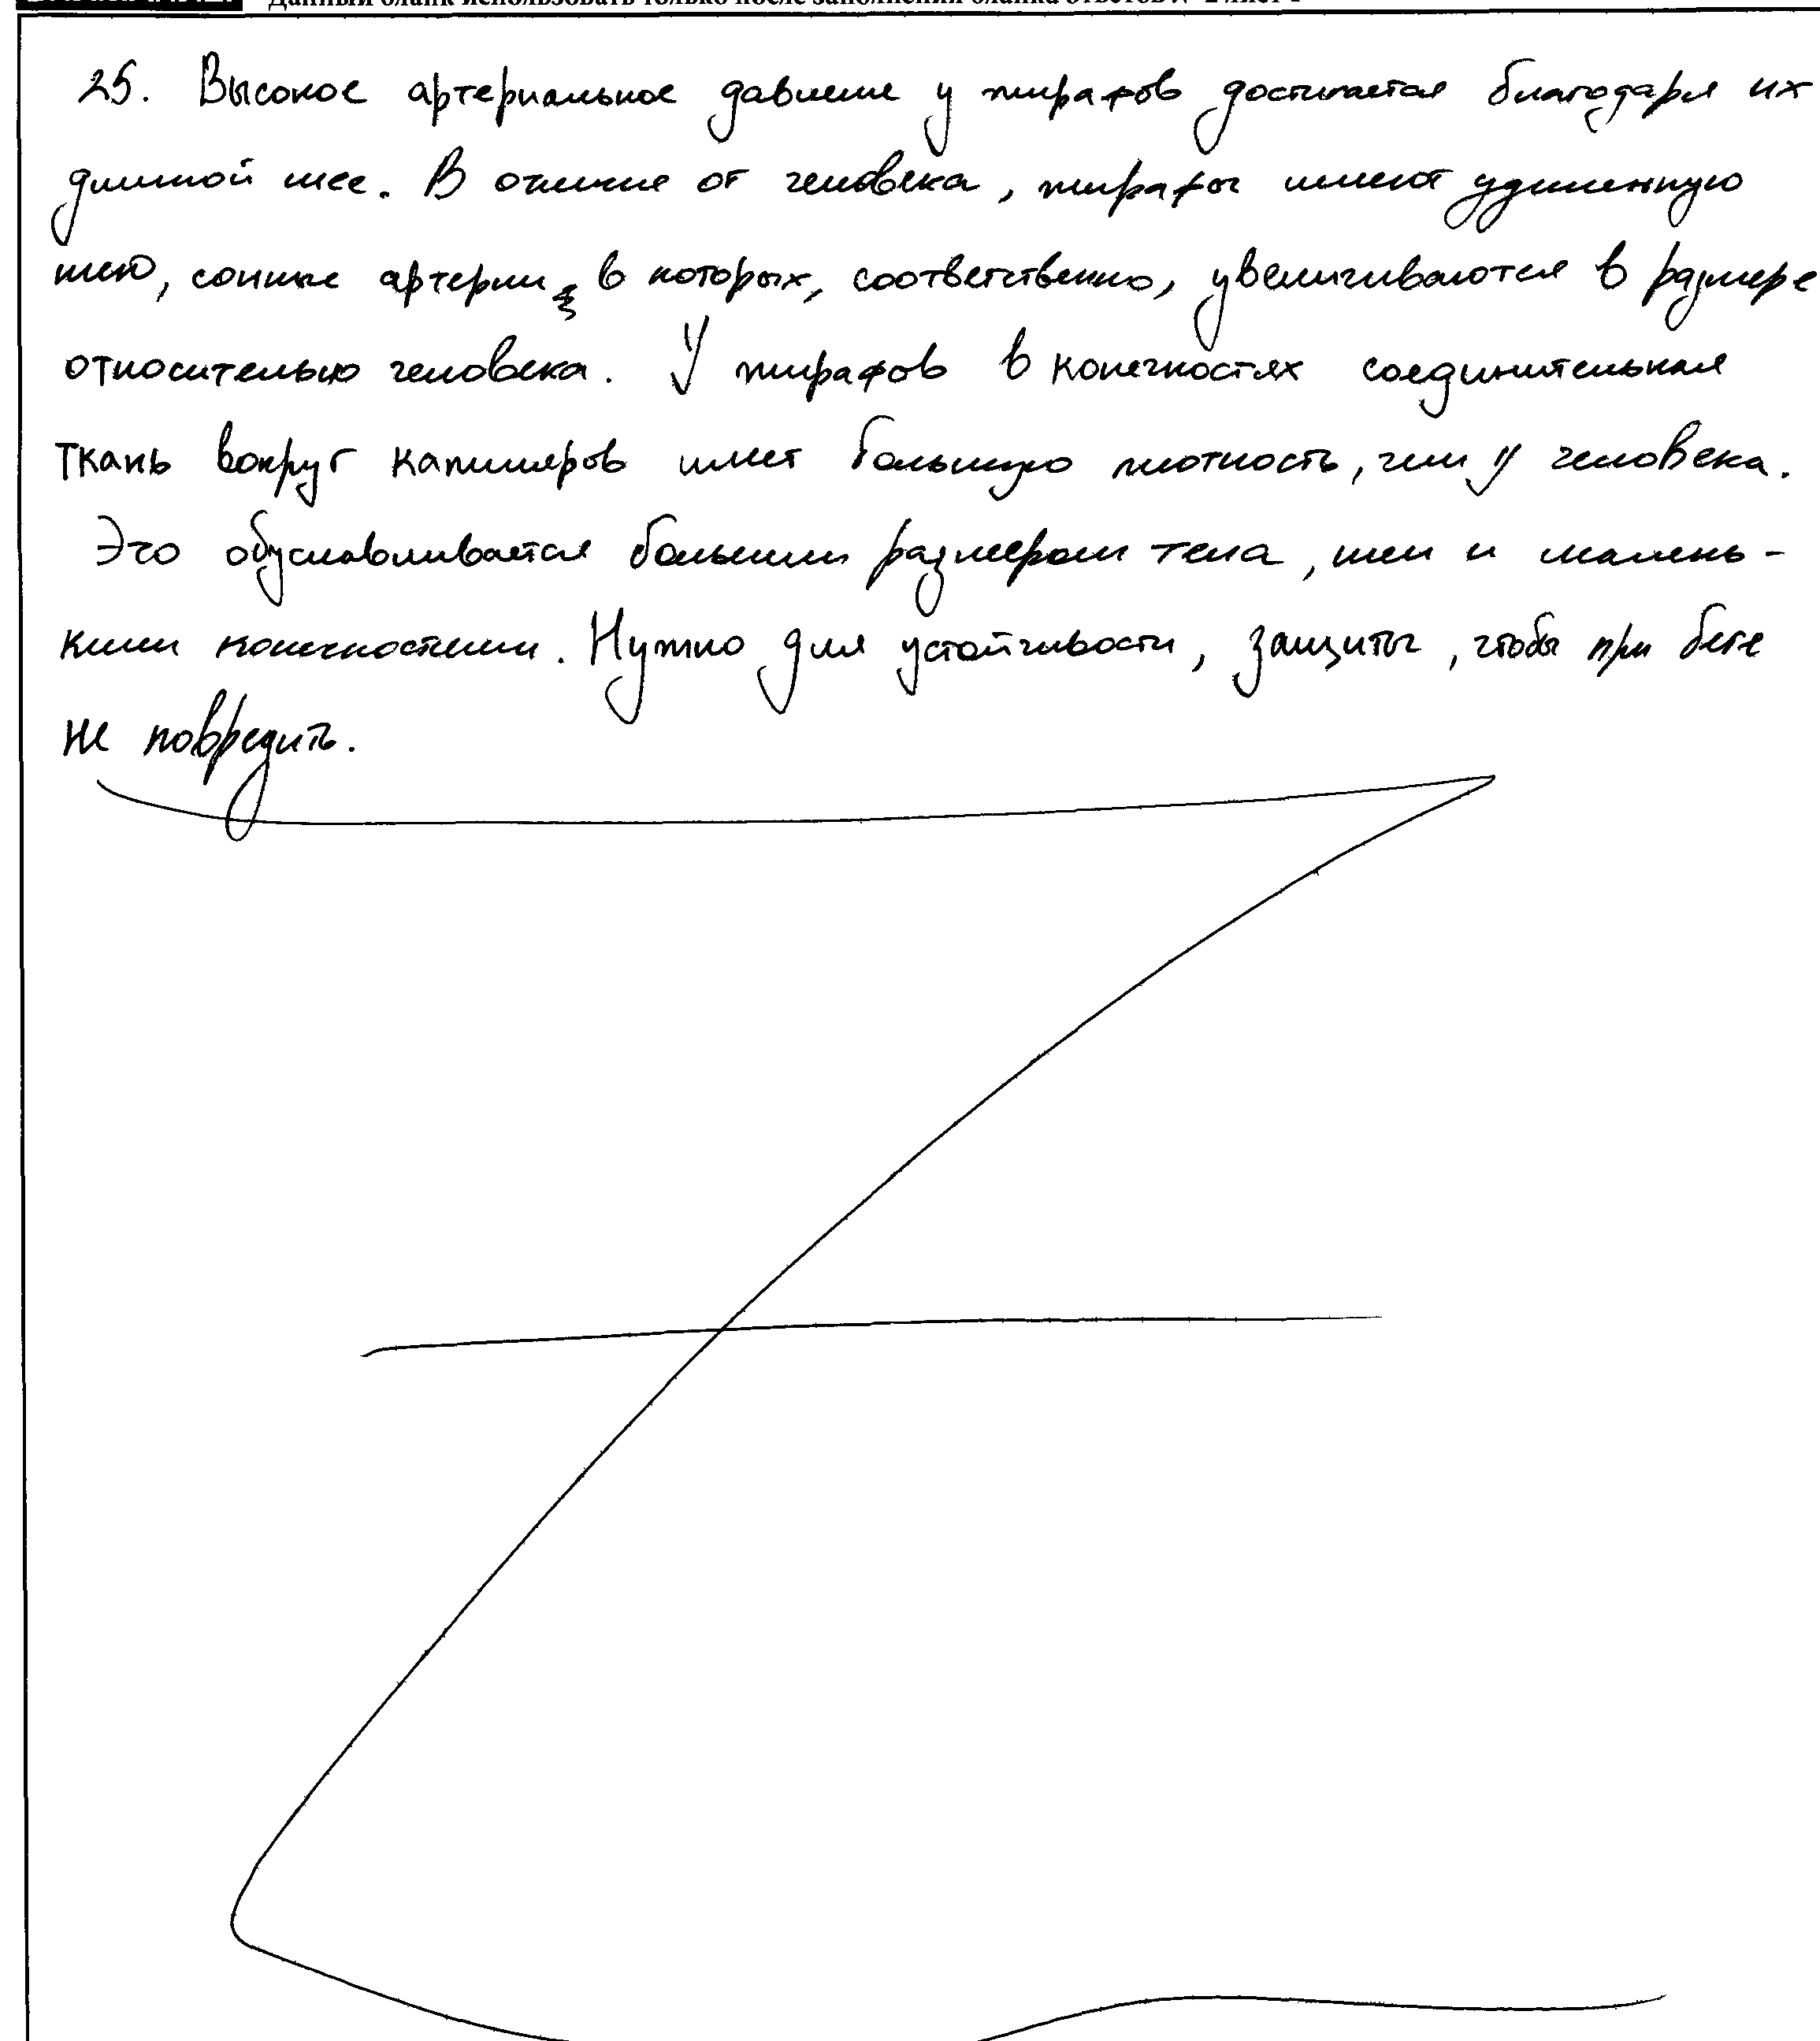 Данный бланк использовать только после заполнения бланка ответов № 2 лист 1
25. Высокое артериальное давление у жирафов достигается благодаря их
длинной шее. В отличие от человека, жирафы имеют удлиненную
шею, сонные артерии, в которых, соответственно, увеличиваются в размере
относительно человека. У жирафов в конечностях соединительная
ткань вокруг капилляров имеет большую плотность, чем у человека.
Это обуславливается большим размером тела, шеи и малень-
кими конечностями. Нужно для устойчивости, защиты, чтобы при беге
не повредить.